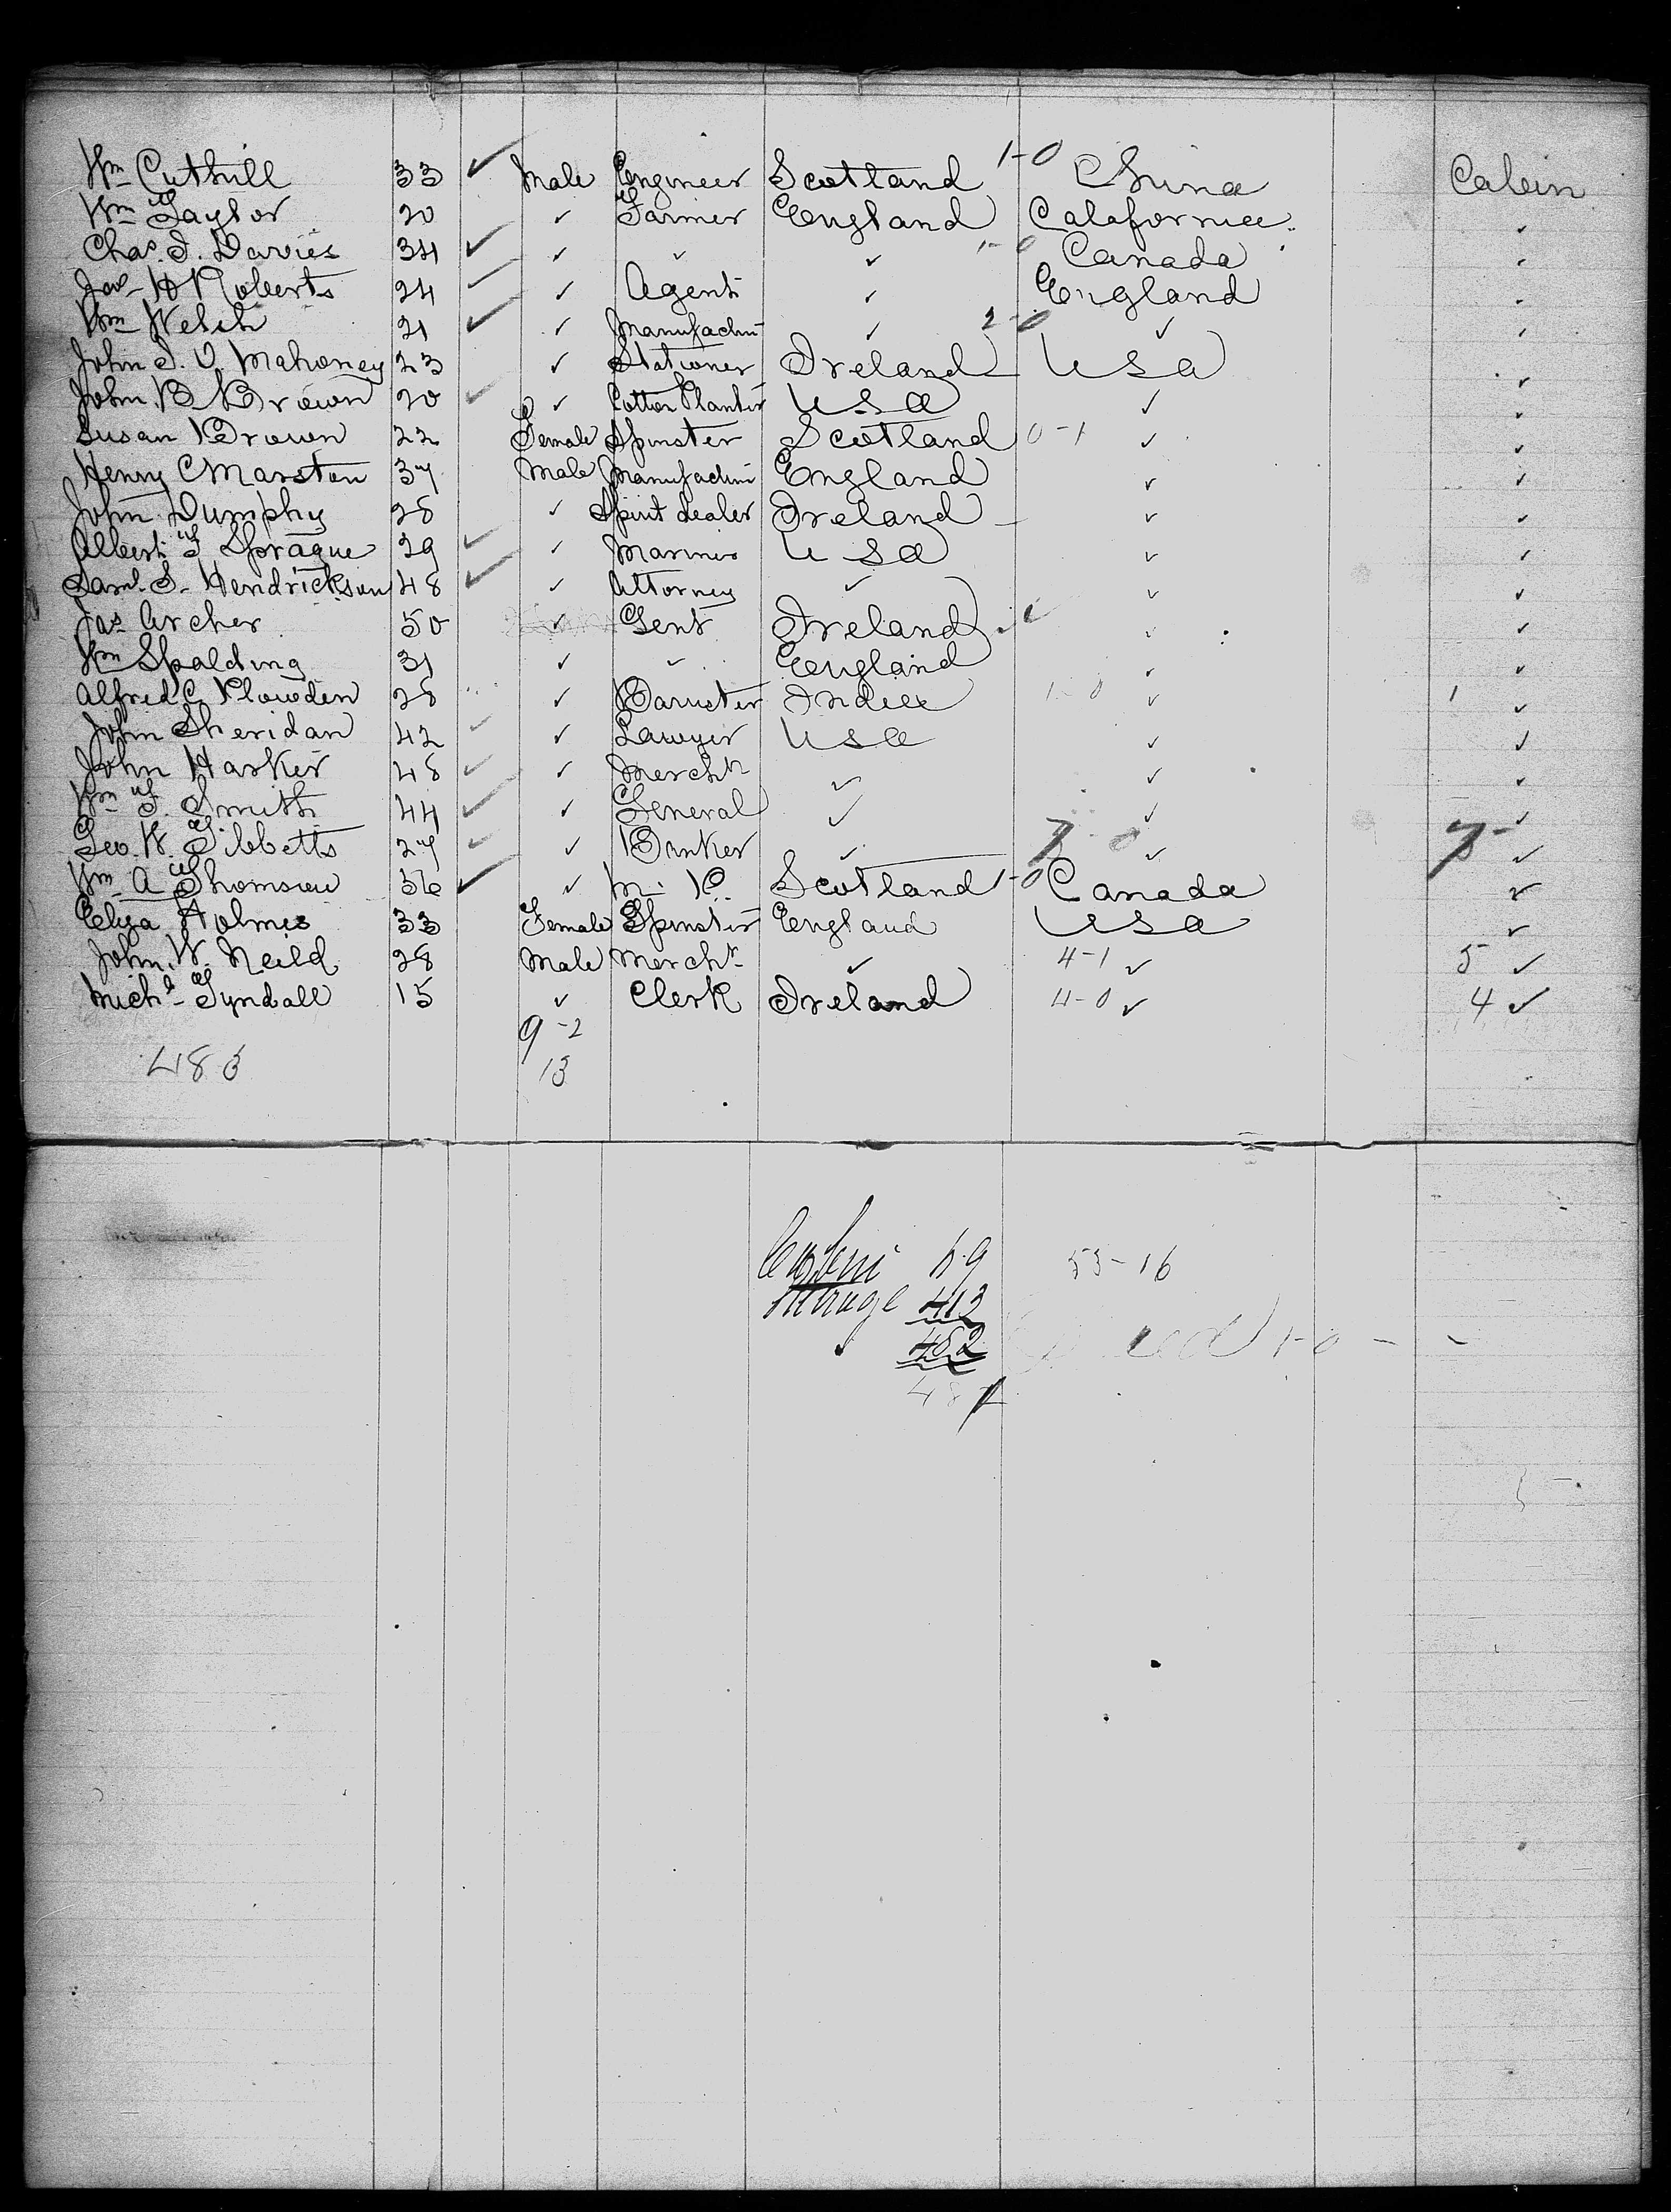 Wm Cuthill 33 ✓ Male Engineer Scotland 1-0 China Cabin
Wm Taylor 20 ✓ Farmer England Calafornia ✓
Chas. I. Davies 34 ✓ ✓ ✓ ✓ 1-0 Canada ✓
Jas H Roberts 24 ✓ ✓ Agent ✓ England ✓
Wm Welsh 21 ✓ ✓ Manufactur ✓ 2-0 ✓ ✓
John I. O. Mahoney 23 ✓ Stationer Ireland USA ✓
John B Brown 20 ✓ ✓ Cotton Planter USA ✓ ✓
Susan Brown 22 Female Spinster Scotland 0-1 ✓ ✓
Henry C Marston 37 Male Manufactur England ✓ ✓
John Dumphy 28 ✓ Spirit dealer Ireland ✓ ✓
Albert T Sprague 29 ✓ ✓ Mariner USA ✓ ✓
Saml. S. Hendrickson 48 ✓ ✓ Attorney ✓ ✓ ✓
Jas Archer 50 ✓ Gent Ireland ✓ ✓
Wm Spalding 31 ✓ ✓ England ✓ ✓
Alfred C Plowden 28 ✓ Barrister India 1-0 ✓ 1 ✓
John Sheridan 42 ✓ ✓ Lawyer USA ✓ ✓
John Harker 48 ✓ ✓ Mercht ✓ ✓ ✓
Wm T. Smith 44 ✓ ✓ General ✓ ✓ ✓
Geo. W. Tibbetts 27 ✓ ✓ Banker ✓ 7-0 ✓ 7- ✓
Wm A Thomson 56 ✓ ✓ M. P. Scotland 1-0 Canada ✓
Eliza Holmes 33 Female Spinster England USA ✓
John. W. Neild 28 Male Mercht ✓ 4-1 ✓ 5 ✓
Michl Tyndall 15 ✓ Clerk Ireland 4-0 ✓ 4 ✓
9-2
483 13
Cabin 69 53-16
Steerage 413
✓ 482 1-0
48